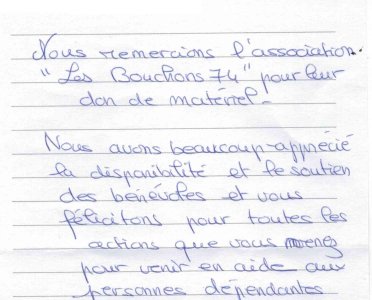 Nous remercions l'association.
"Les Bouchons 74" pour leur
don de matériel.
Nous avons beaucoup apprécié
la disponibilité et le soutien
des bénévoles et vous
félicitons pour toutes les
actions que vous menez
pour venir en aide aux
personnes dépendantes